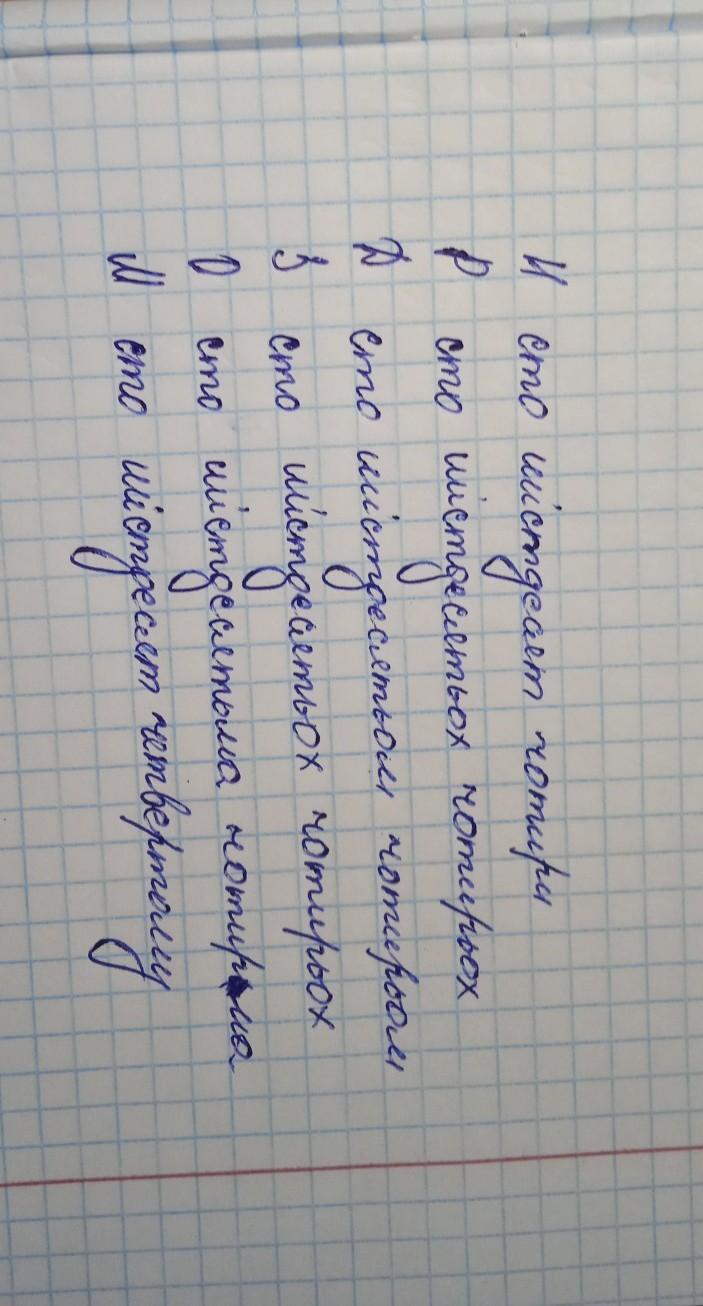 Н сто шістдесят чотири
Р сто шістдесятьох чотирьох
Д сто шістдесятьом чотирьом
З сто шістдесятьох чотирьох
О сто шістдесятьма чотирма
М сто шістдесят четвертому